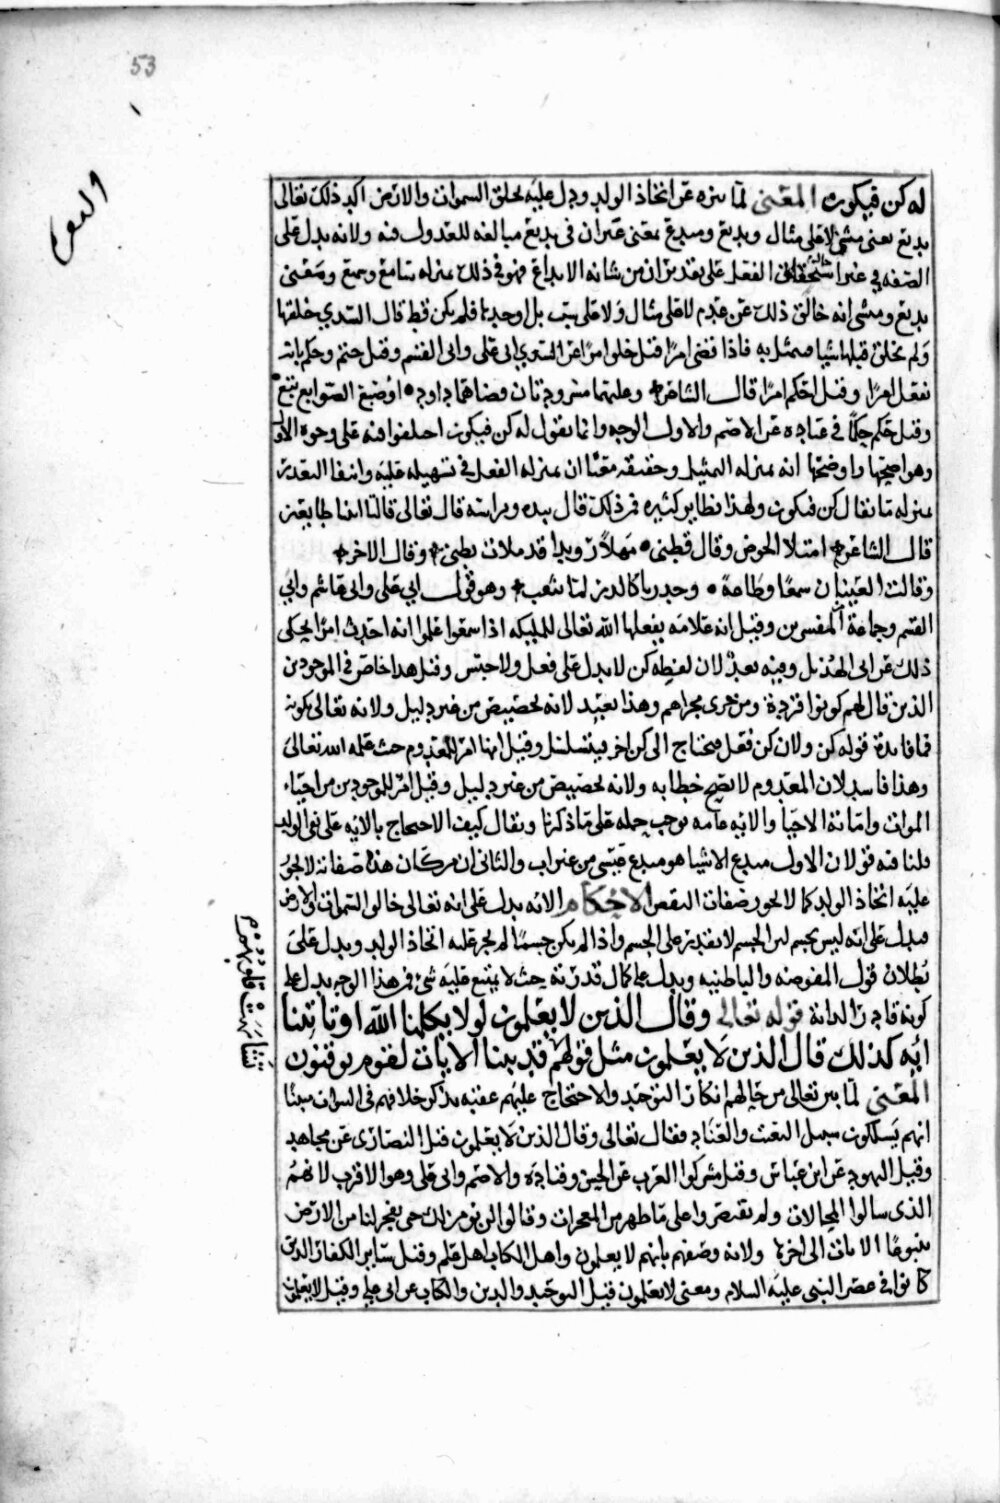 53
له كن فيكون المعنى لما نزه عن اتخاذ الولد ودل عليه بخلق السموات والارض اكد ذلك تعالى
بديع يعنى منشئ لا على مثال وبديع ومبدع بمعنى غير ان في بديع مبالغه للعدول فيه ولانه يدل على
الصفه في غير الفعل على تقدير ان من شانه الابداع فهو في ذلك بمنزله سامع وسميع ومعنى
بديع ومنشى انه خالق ذلك عن عدم لا على مثال ولا على سبب بل اوجدها فلم يكن قط قال السدي خلقها
ولم يخلق قبلها شيا فتمثل به فاذا قضى امرا قيل خلو امرا عن السدي ابى على وابى القسم وقيل حتم وحكم بانه
يفعل امرا وقيل احكم امرا قال الشاعر وعليهما مسرودتان قضاهما داود او صنع السوابغ تبع
وقيل حكم حكما في عباده عن الاصم والاول الوجه وانما يقول له كن فيكون اختلفوا فيه على وجوه الاول
وهو اصحها واوضحها انه بمنزله التمثيل وحقيقه معنا ان منزله الفعل في تسهيله عليه وانتفا التعذر
بمنزله ما يقال كن فيكون ولهذا نظاير كثيره فمن ذلك قال بيده وبراسه قال تعالى قالتا اتينا طايعين
قال الشاعر امتلا الحوض وقال قطنى مهلا رويدا قد ملات بطنى وقال الاخر
وقالت العينان سمعا وطاعة وحدرتا كالدر لما يثقب وهو قول ابي على وابي هاشم وابي
القسم وجماعة المفسرين وقيل انه علامه يفعلها الله تعالى للمليكه اذا سمعوا علموا انه احدث امرا يحكى
ذلك عن ابى الهذيل وفيه بعد لان لفظه كن لا يدل على فعل ولا جنس وقيل هذا خاص في الموجودين
الذين قال لهم كونوا قردة ومن جرى مجراهم وهذا بعيد لانه تخصيص من غير دليل ولانه تعالى يكونه
فما فايدة قوله كن ولان كن فعل فيحتاج الى كن اخر فيتسلسل وقيل انها امر للمعدوم حيث علمه الله تعالى
وهذا فاسد لان المعدوم لا يصح خطابه ولانه تخصيص من غير دليل وقيل امر للموجودين من احياء
الموات واماتة الاحيا والايه عامه توجب حمله على ما ذكرنا ويقال كيف الاحتجاج بالايه على نفى الولد
قلنا فيه قولان الاول مبدع الاشيا هو مبدع عيسى من غير اب والثانى ان من كان هذه صفاته لا يجوز
عليه اتخاذ الولد كما لا يجوز صفات النقص الاحكام الايه يدل على انه تعالى خالق السموات والارض
فيدل على انه ليس بجسم لان الجسم لا يقدر على الجسم واذا لم يكن جسما لم يجز عليه اتخاذ الولد ويدل على
بطلان قول المفوضه والباطنيه ويدل على كمال قدرته حيث لا يمتنع عليه شئ فمن هذا الوجه يدل على
كونه قادرا لذاته قوله تعالى وقال الذين لا يعلمون لولا يكلمنا الله او تاتينا
ايه كذلك قال الذين لا يعلمون مثل قولهم قد بينا الايات لقوم يوقنون
تشابهت قلوبهم
المعنى لما بين تعالى من حالهم انكار التوحيد والاحتجاج عليهم عقبه بذكر خلافهم في النبوات مبينا
انهم يسلكون سبيل التعنت والعناد فقال تعالى وقال الذين لا يعلمون قيل النصارى عن مجاهد
وقيل اليهود عن ابن عباس وقيل مشركوا العرب عن الحسن وقتاده والاصم وابى على وهو الاقرب لانهم
الذى سالوا المحالات ولم يقتصروا على ما ظهر من المعجزات وقالوا لن نومن لك حتى تفجر لنا من الارض
ينبوعا الايات الى اخرها ولانه وصفهم بانهم لا يعلمون واهل الكتاب اهل علم وقيل ساير الكفار الذين
كانوا في عصر النبى عليه السلام ومعنى لا يعلمون قيل التوحيد والدين والكتاب عن ابى على وقيل لا يعلمون